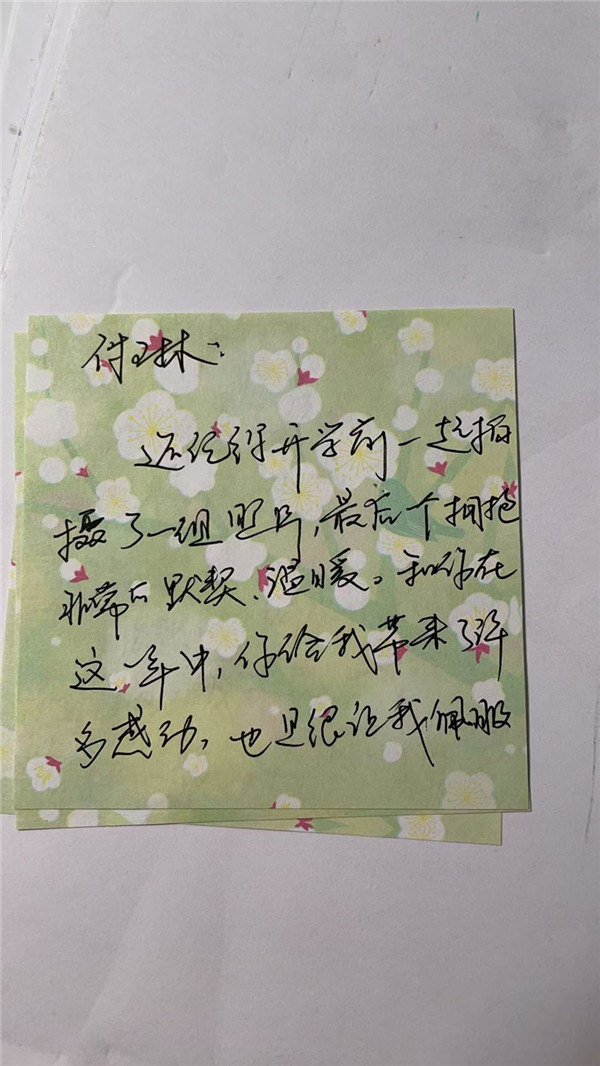 付玉林：
还记得开学前一起拍
摄了一组照片，最后个拥抱
非常的默契、温暖。和你在
这一年中，你给我带来了许
多感动，也且很让我佩服